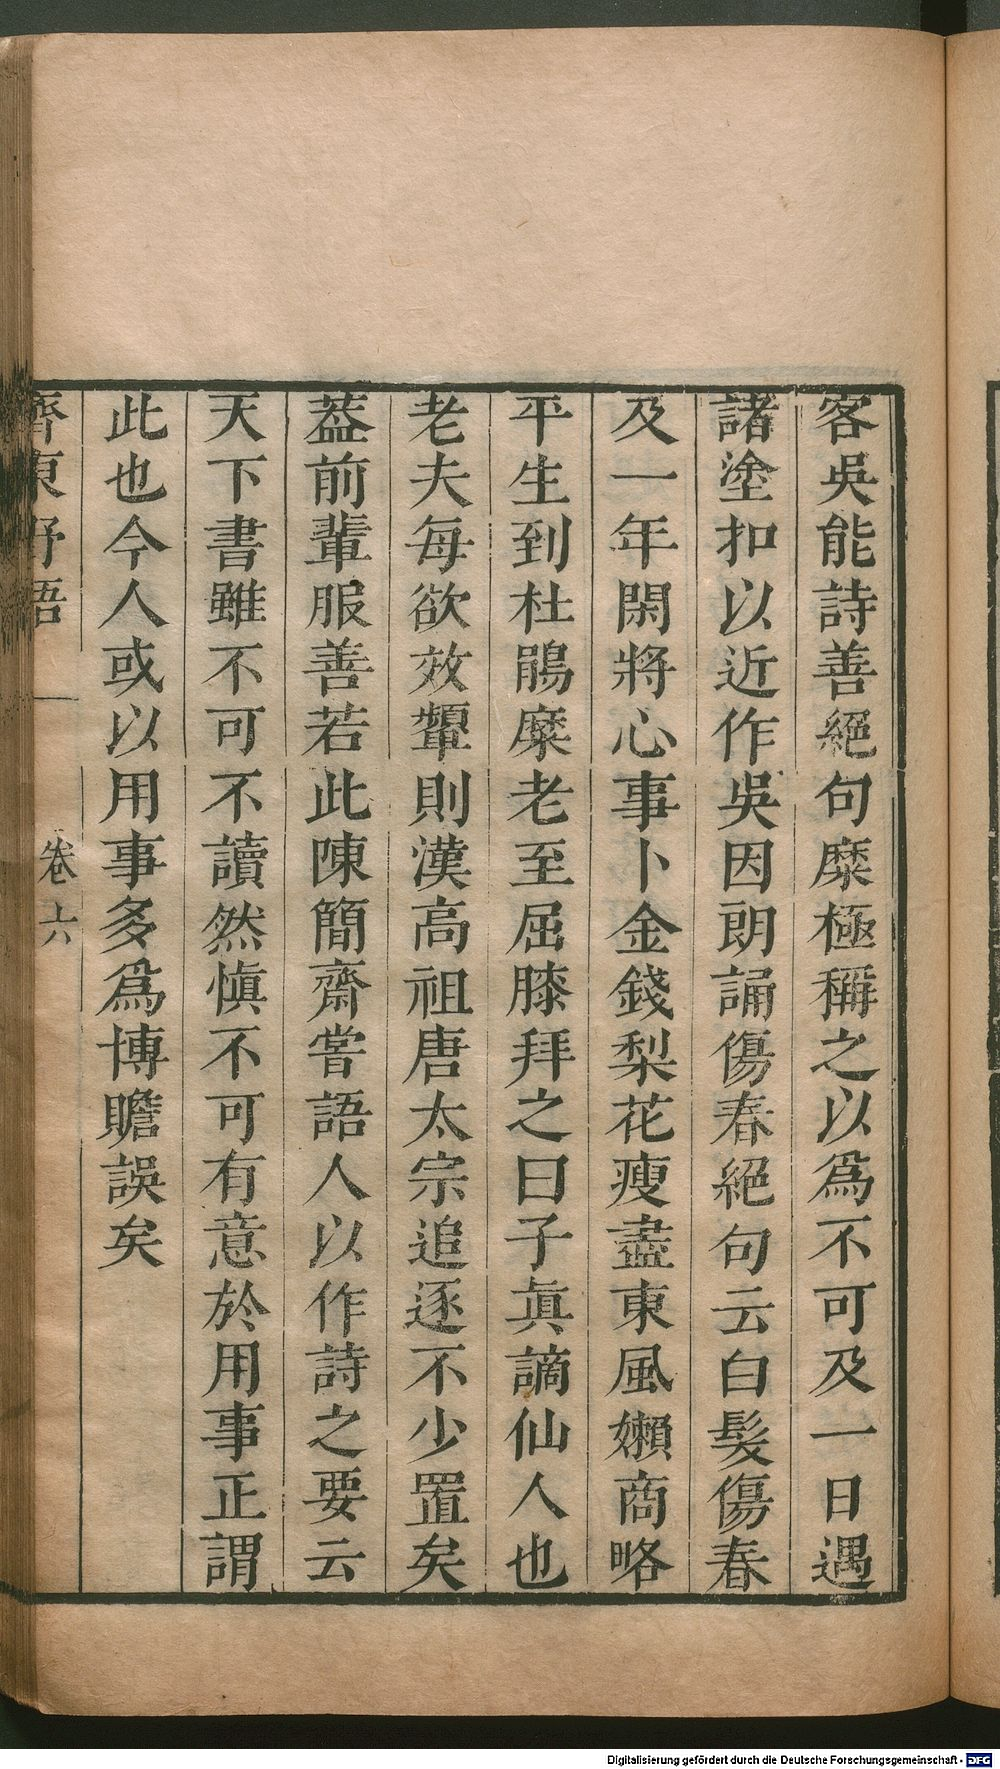 客吳能詩善絕句糜極稱之以爲不可及一日遇
諸塗扣以近作吳因朗誦傷春絕句云白髮傷春
及一年閑將心事卜金錢梨花瘦盡東風嬾商略
平生到杜鵑糜老至屈膝拜之曰子眞謫仙人也
老夫每欲效顰則漢高祖唐太宗追逐不少置矣
葢前輩服善若此陳簡齋嘗語人以作詩之要云
天下書雖不可不讀然愼不可有意於用事正謂
此也今人或以用事多爲博贍誤矣
齊東野語 卷六
Digitalisierung gefördert durch die Deutsche Forschungsgemeinschaft - DFG